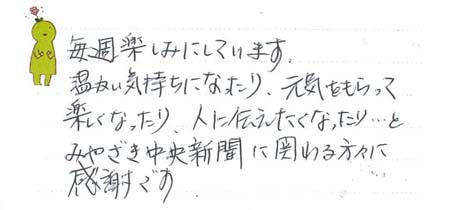 毎週楽しみにしています。
温かい気持ちになったり、元気をもらって
楽しくなったり、人に伝えたくなったり…と
みやざき中央新聞に関わる方々に
感謝です